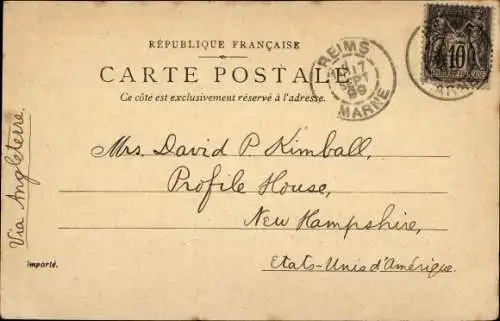 RÉPUBLIQUE FRANÇAISE
CARTE POSTALE
Ce côté est exclusivement réservé à l'adresse.
REIMS
17
SEPT
99
MARNE
10
Mrs. David P Kimball,
Profile House,
New Hampshire,
Etats-Unis d'Amérique.
Via Angleterre.
Importé.